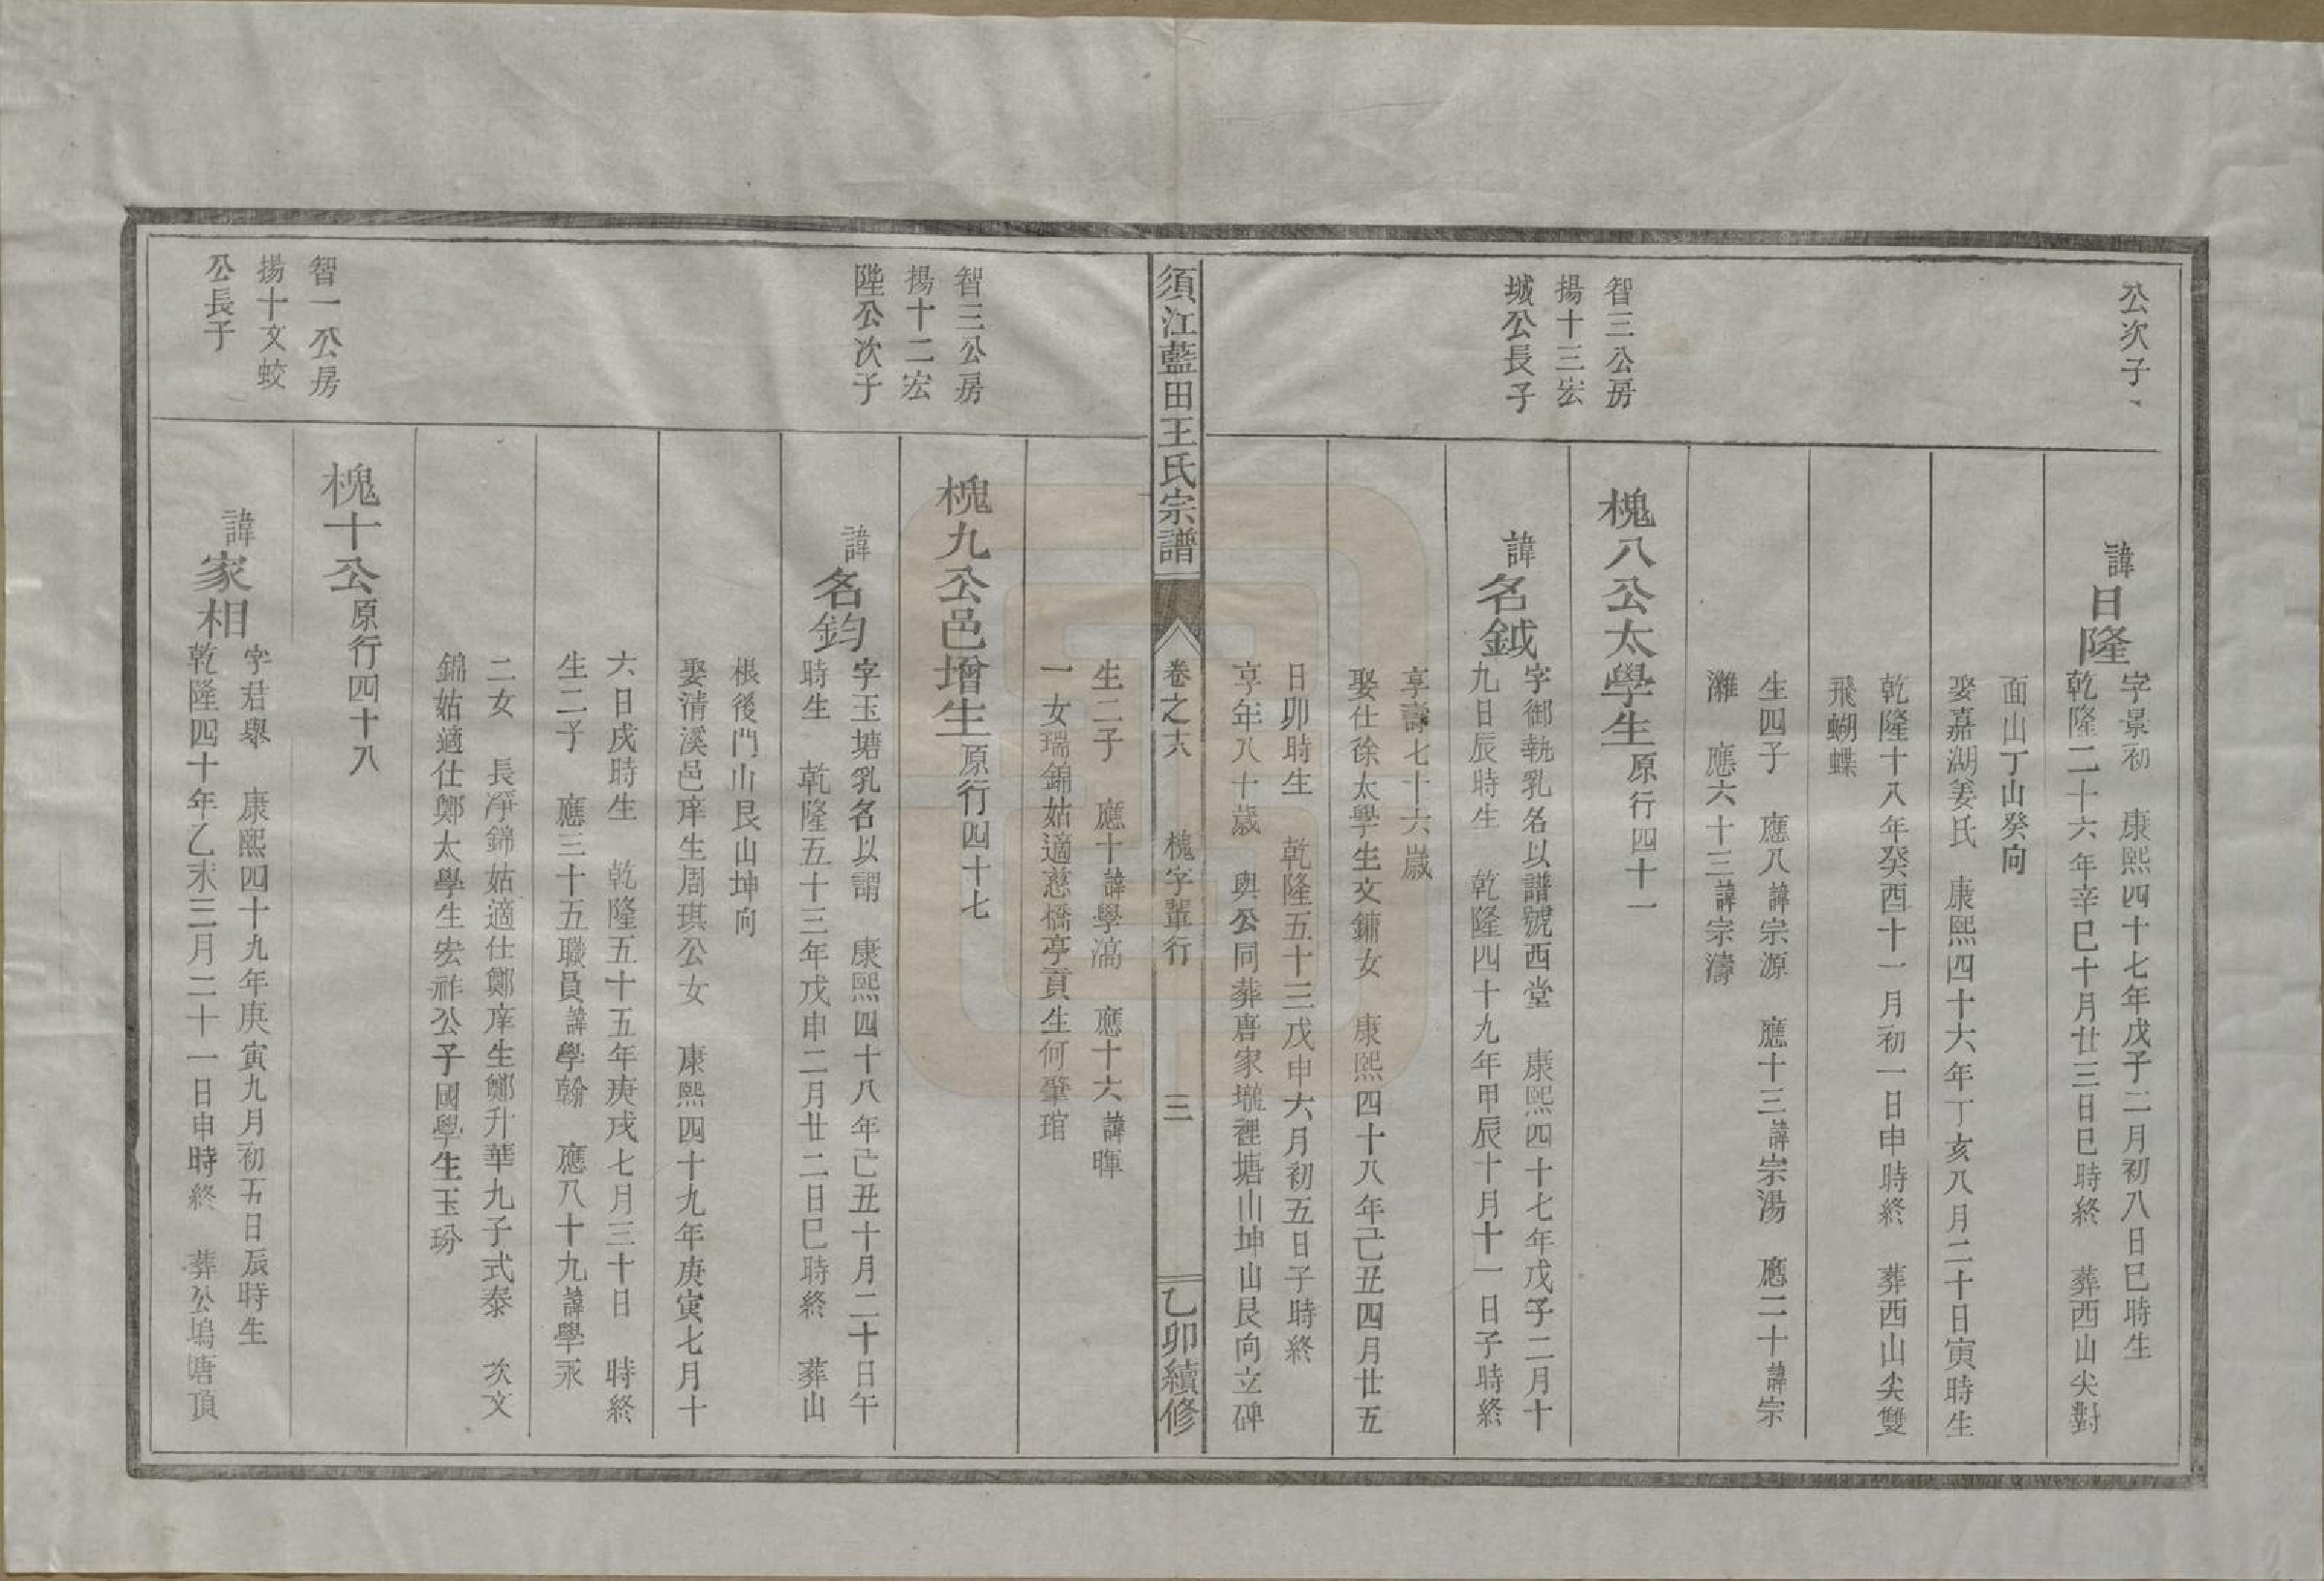 公次子
諱日隆
字景初　康熙四十七年戊子二月初八日巳時生
乾隆二十六年辛巳十月廿三日巳時終　葬西山尖對
面山丁山癸向
娶嘉湖姜氏　康熙四十六年丁亥八月二十日寅時生
乾隆十八年癸酉十一月初一日申時終　葬西山尖雙
飛蝴蝶
生四子　應八諱宗源　應十三諱宗湯　應二十諱宗
濰　應六十三諱宗濤
智三公房
揚十三宏
城公長子
槐八公太學生原行四十一
諱名鉞
字御執乳名以譜號西堂　康熙四十七年戊子二月十
九日辰時生　乾隆四十九年甲辰十月十一日子時終
享壽七十六嵗
娶仕徐太學生文鏞女　康熙四十八年己丑四月廿五
日卯時生　乾隆五十三戊申六月初五日子時終
享年八十歲　與公同葬唐家壠裡塘山坤山艮向立碑
須江藍田王氏宗譜
卷之六　槐字輩行　三
乙卯續修
生二子　應十諱學滈　應十六諱暉
一女瑞錦姑適慈橋亭貢生何肇琯
智三公房
揚十二宏
陛公次子
槐九公邑增生原行四十七
諱名鈞
字玉塘乳名以謂　康熙四十八年己丑十月二十日午
時生　乾隆五十三年戊申二月廿二日巳時終　葬山
根後門山艮山坤向
娶清溪邑庠生周琪公女　康熙四十九年庚寅七月十
六日戌時生　乾隆五十五年庚戌七月三十日　時終
生二子　應三十五職員諱學翰　應八十九諱學永
二女　長凈錦姑適仕鄭庠生鄭升華九子式泰　次文
錦姑適仕鄭太學生宏祚公子國學生玉玢
智一公房
揚十文蛟
公長子
槐十公原行四十八
諱家相
字君舉　康熙四十九年庚寅九月初五日辰時生
乾隆四十年乙未三月二十一日申時終　葬公塢塘頂